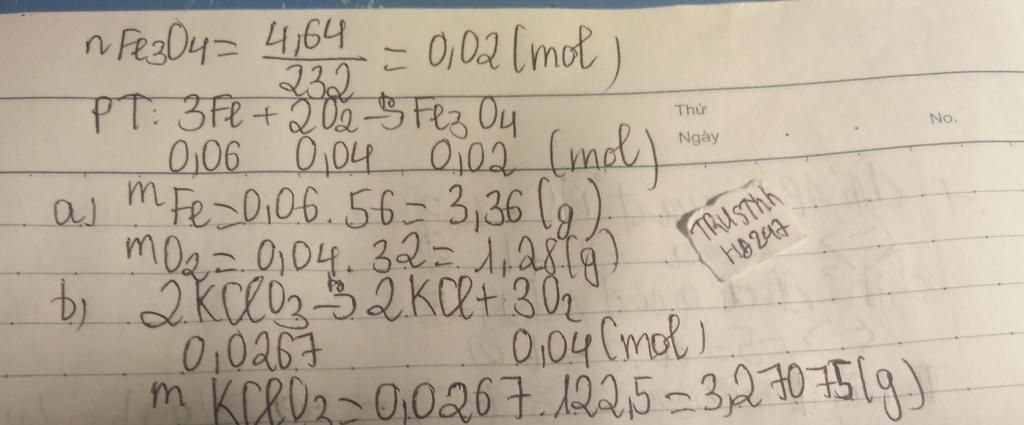 nFe3O4 = 4,64 / 232 = 0,02 (mol)
PT: 3Fe + 2O2 →t° Fe3O4
0,06 0,04 0,02 (mol)
Thứ
Ngày
No.
a) mFe = 0,06 . 56 = 3,36 (g)
mO2 = 0,04 . 32 = 1,28 (g)
b) 2KClO3 →t° 2KCl + 3O2
0,0267 0,04 (mol)
m KClO3 = 0,0267 . 122,5 = 3,27075 (g)